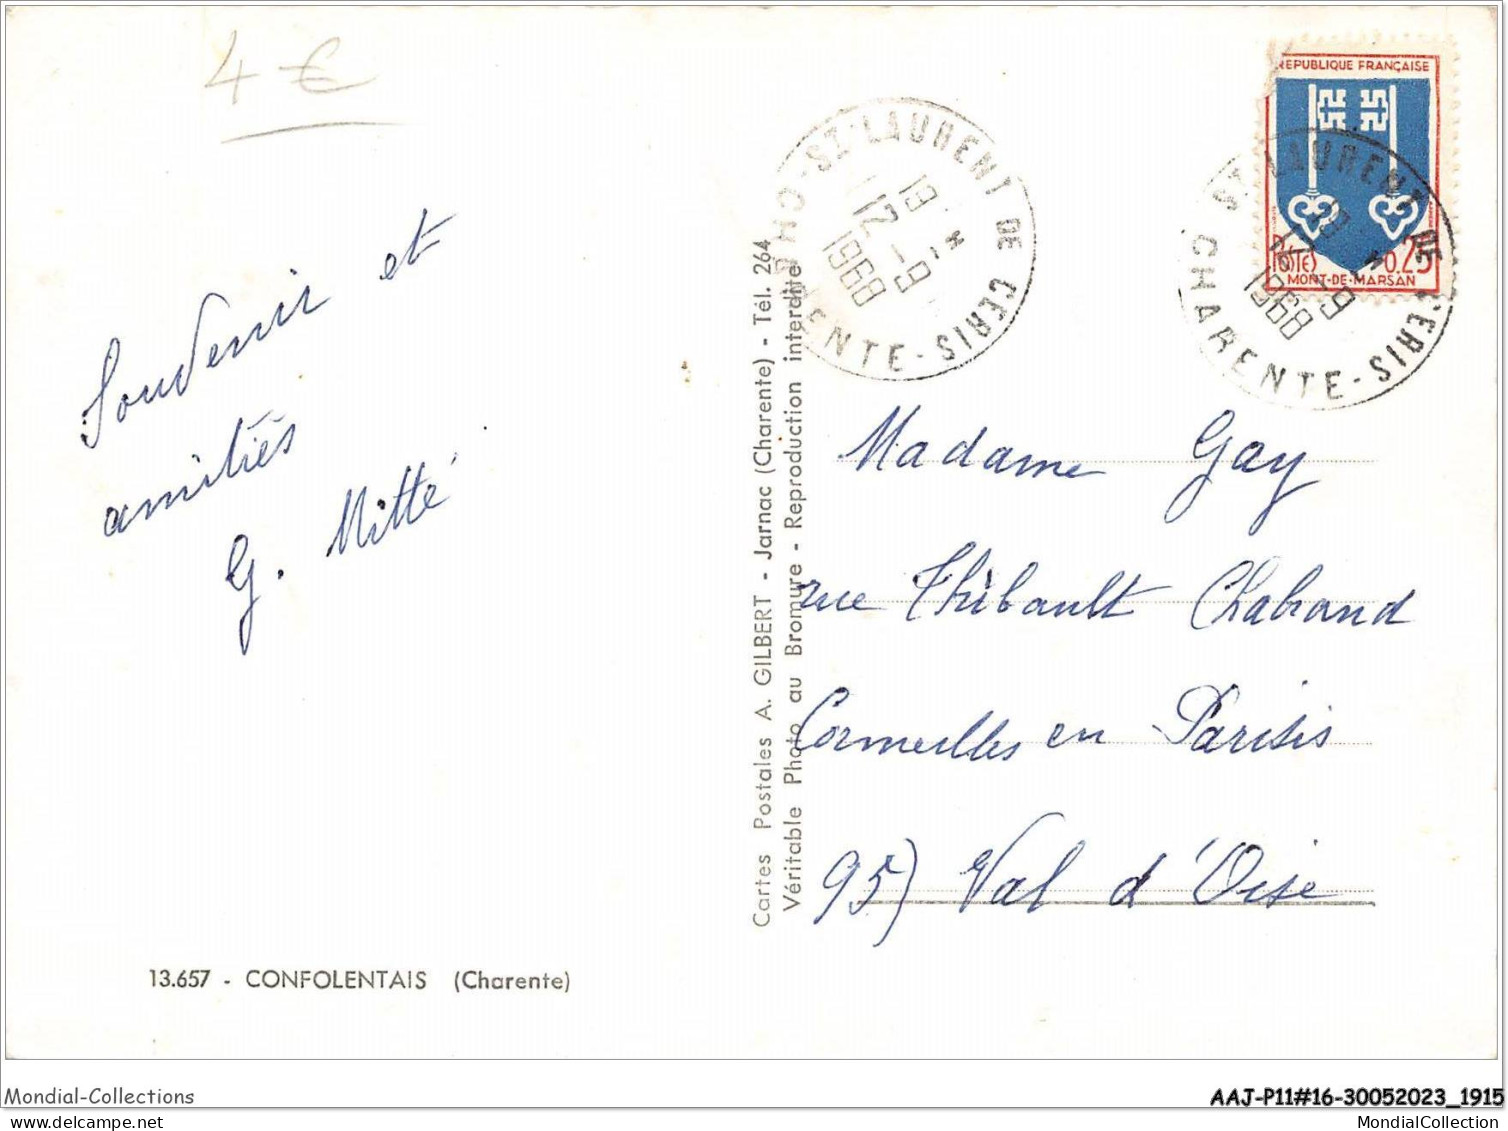 4 €
Souvenir et
amitiés
G. Mitté
13.657 - CONFOLENTAIS (Charente)
Cartes Postales A. GILBERT - Jarnac (Charente) - Tél. 264
Véritable Photo au Bromure - Reproduction interdite
ST LAURENT DE CERIS - CHARENTE -
19 H
12 - 9
1968
REPUBLIQUE FRANÇAISE
POSTES 0,25
MONT-DE-MARSAN
ST LAURENT DE CERIS - CHARENTE
1968
Madame Gay
rue Thibault Chabrand
Cormeilles en Parisis
95) Val d'Oise
Mondial-Collections
AAJ-P11#16-30052023_1915
MondialCollection